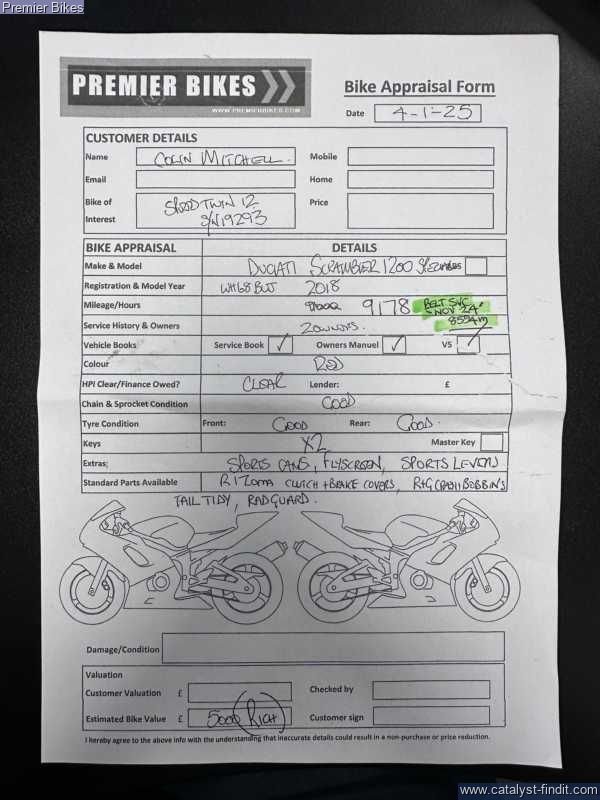 Premier Bikes
PREMIER BIKES
WWW.PREMIERBIKES.COM
Bike Appraisal Form
Date 4-1-25
CUSTOMER DETAILS
Name COLIN MITCHELL. Mobile
Email Home
Bike of Interest SPEED TWIN 12 S/N19293 Price
BIKE APPRAISAL DETAILS
Make & Model DUCATI SCRAMBLER 1200
Registration & Model Year 2018
Mileage/Hours 9178 BELT SVC NOV 24' 8554m
Service History & Owners 2 OWNERS.
Vehicle Books Service Book ✓ Owners Manuel ✓ V5 ✓
Colour RED
HPI Clear/Finance Owed? CLEAR Lender: £
Chain & Sprocket Condition GOOD
Tyre Condition Front: GOOD Rear: GOOD.
Keys X2 Master Key
Extras; SPORTS CANS, FLYSCREEN, SPORTS LEVERS
Standard Parts Available RIZOMA CLUTCH + BRAKE COVERS, R+G CRASH BOBBINS
TAIL TIDY, RAD GUARD.
Damage/Condition
Valuation
Customer Valuation £ Checked by
Estimated Bike Value £ 5000 (RICH) Customer sign
I hereby agree to the above info with the understanding that inaccurate details could result in a non-purchase or price reduction.
www.catalyst-findit.com